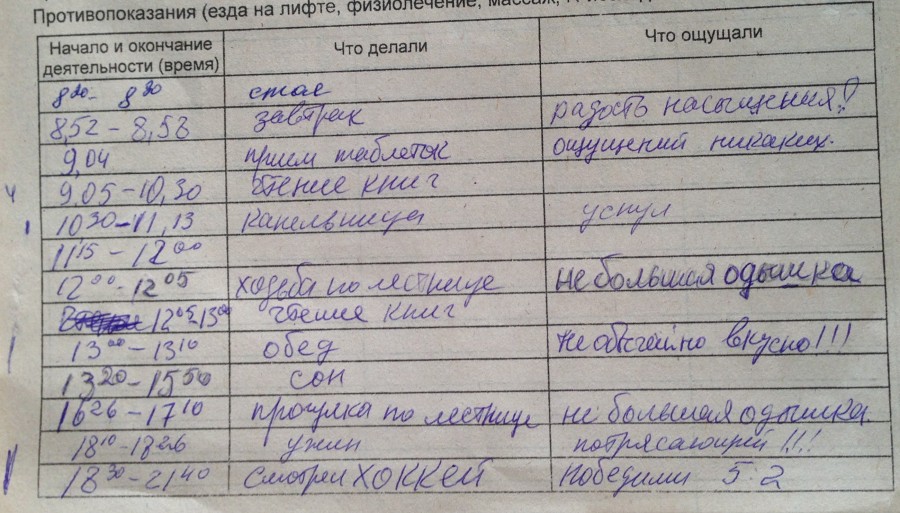 Противопоказания (езда на лифте, физиолечение, массаж,
Начало и окончание деятельности (время) Что делали Что ощущали
8 20- 8 30
8,52 - 8,58 завтрак радость насыщения!
9,04 прием таблеток ощущений никаких.
9,05-10,30 чтение книг
10 30-11,13 капельница уснул
11 15 - 12 00
12 00 - 12 05 ходьба по лестнице не большая одышка
12 05-13 00 чтение книг
13 00 - 13 10 обед необычайно вкусно!!!
13 20 - 15 50 сон
16 26 - 17 10 прогулка по лестнице не большая одышка.
18 10-18 26 ужин потрясающий!!!
18 30-21 40 смотрел ХОККЕЙ победили 5:2